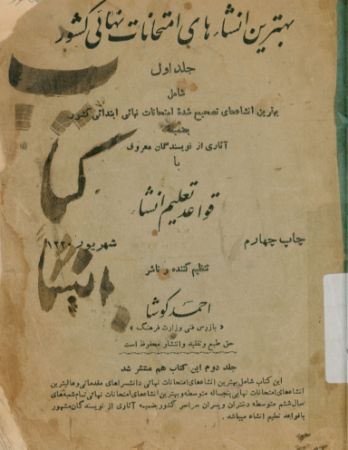 بهترین انشاءهای امتحانات نهائی کشور
جلد اول
شامل
بهترین انشاءهای تصحیح شدهٔ امتحانات نهائی ابتدائی کشور
بضمیمه
آثاری از نویسندگان معروف
با
قواعد تعلیم انشاء
چاپ چهارم
شهریور ۱۳۳۰
تنظیم کننده و ناشر
احمد کوشا
« بازرس فنی وزارت فرهنگ »
حق طبع و تقلید و انتشار محفوظ است
جلد دوم این کتاب هم منتشر شد
این کتاب شامل بهترین انشاءهای امتحانات نهائی دانشسراهای مقدماتی و عالیترین
انشاءهای امتحانات نهایی پنجساله متوسطه و بهترین انشاءهای امتحانات نهائی تمام شعبه‌های
سال ششم متوسطه دختران و پسران مدارس کشور بضمیمه آثاری از نویسندگان مشهور
با قواعد تعلیم انشاء میباشد .
کتاب
انشاء